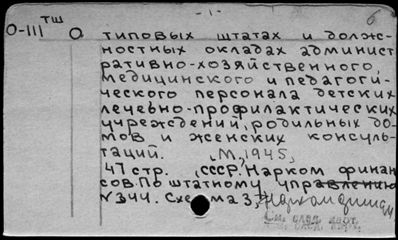 - 1 -
б
ТШ
О-III
О типовых штатах и долж-
ностных окладах админист
ративно-хозяйственного,
медицинского и педагоги-
ческого персонала детских
лечебно-профилактических
учреждений, родильных до
мов и женских консуль-
таций. [М, 1945]
47 стр. (СССР. Нарком финан
сов. По штатному управлению
№344. Схема 3) Наркомфинанс
См. след. карт.